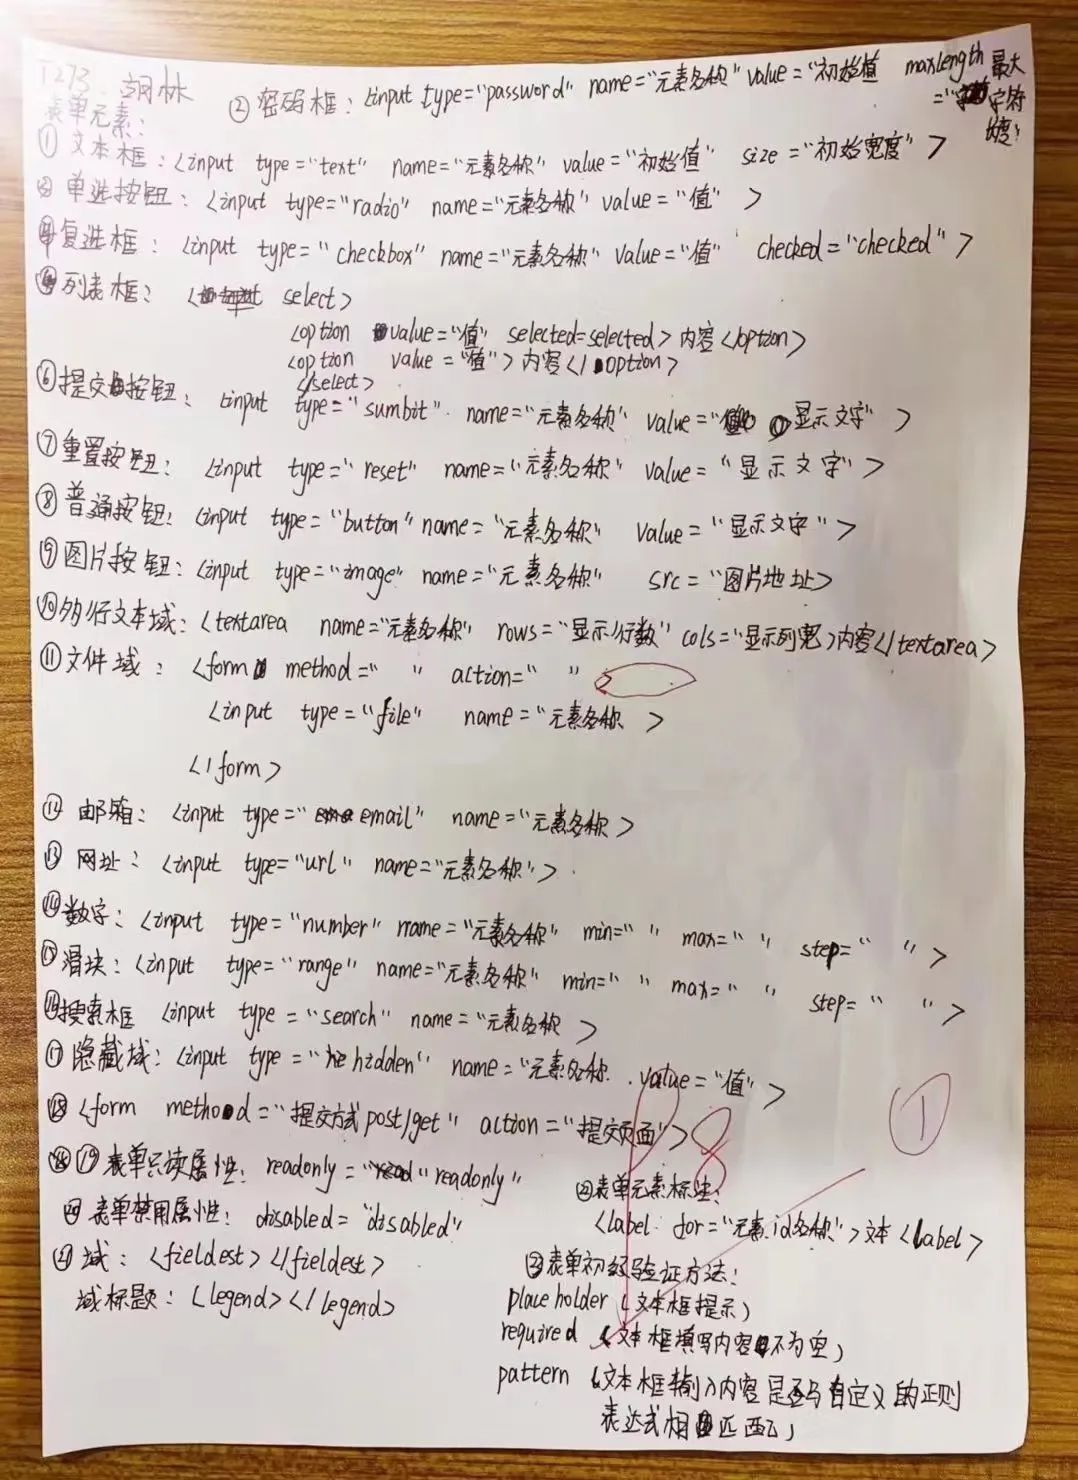 T273. 胡林
表单元素:
② 密码框: <input type="password" name="元素名称" value="初始值 maxlength="最大字符长度>
① 文本框: <input type="text" name="元素名称" value="初始值" size="初始宽度" >
③ 单选按钮: <input type="radio" name="元素名称" value="值" >
④ 复选框: <input type="checkbox" name="元素名称" value="值" checked="checked" >
⑤ 列表框: < select>
<option value="值" selected=selected> 内容 </option>
<option value="值"> 内容 </option>
</select>
⑥ 提交按钮: <input type="sumbit" name="元素名称" value="显示文字" >
⑦ 重置按钮: <input type="reset" name="元素名称" value="显示文字" >
⑧ 普通按钮: <input type="button" name="元素名称" value="显示文字" >
⑨ 图片按钮: <input type="image" name="元素名称" src="图片地址>
⑩ 多行文本域: <textarea name="元素名称" rows="显示行数" cols="显示列宽>内容</textarea>
⑪ 文件域: <form method=" " action=" " >
<input type="file" name="元素名称 >
</form>
⑫ 邮箱: <input type="email" name="元素名称 >
⑬ 网址: <input type="url" name="元素名称" >
⑭ 数字: <input type="number" name="元素名称" min=" " max=" " step=" " >
⑮ 滑块: <input type="range" name="元素名称" min=" " max=" " step=" " >
⑯ 搜索框 <input type="search" name="元素名称 >
⑰ 隐藏域: <input type="hidden" name="元素名称 value="值" >
⑱ <form method="提交方式post/get" action="提交页面" >
①
8
⑲ 表单只读属性: readonly="readonly"
⑳ 表单禁用属性: disabled="disabled"
㉑ 域: <fieldest></fieldest>
域标题: <legend></legend>
㉒ 表单元素标注:
<label for="元素id名称">文本<label>
㉓ 表单初级验证方法:
placeholder (文本框提示)
required (文本框填写内容不为空)
pattern (文本框输入内容是否与自定义的正则
表达式相匹配)